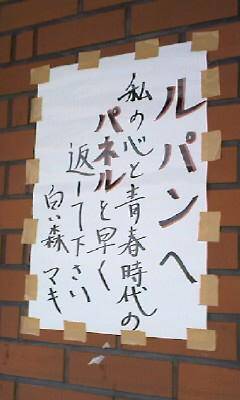 ルパンへ
私の心と青春時代の
パネルを早く
返して下さい
白い森 マキ